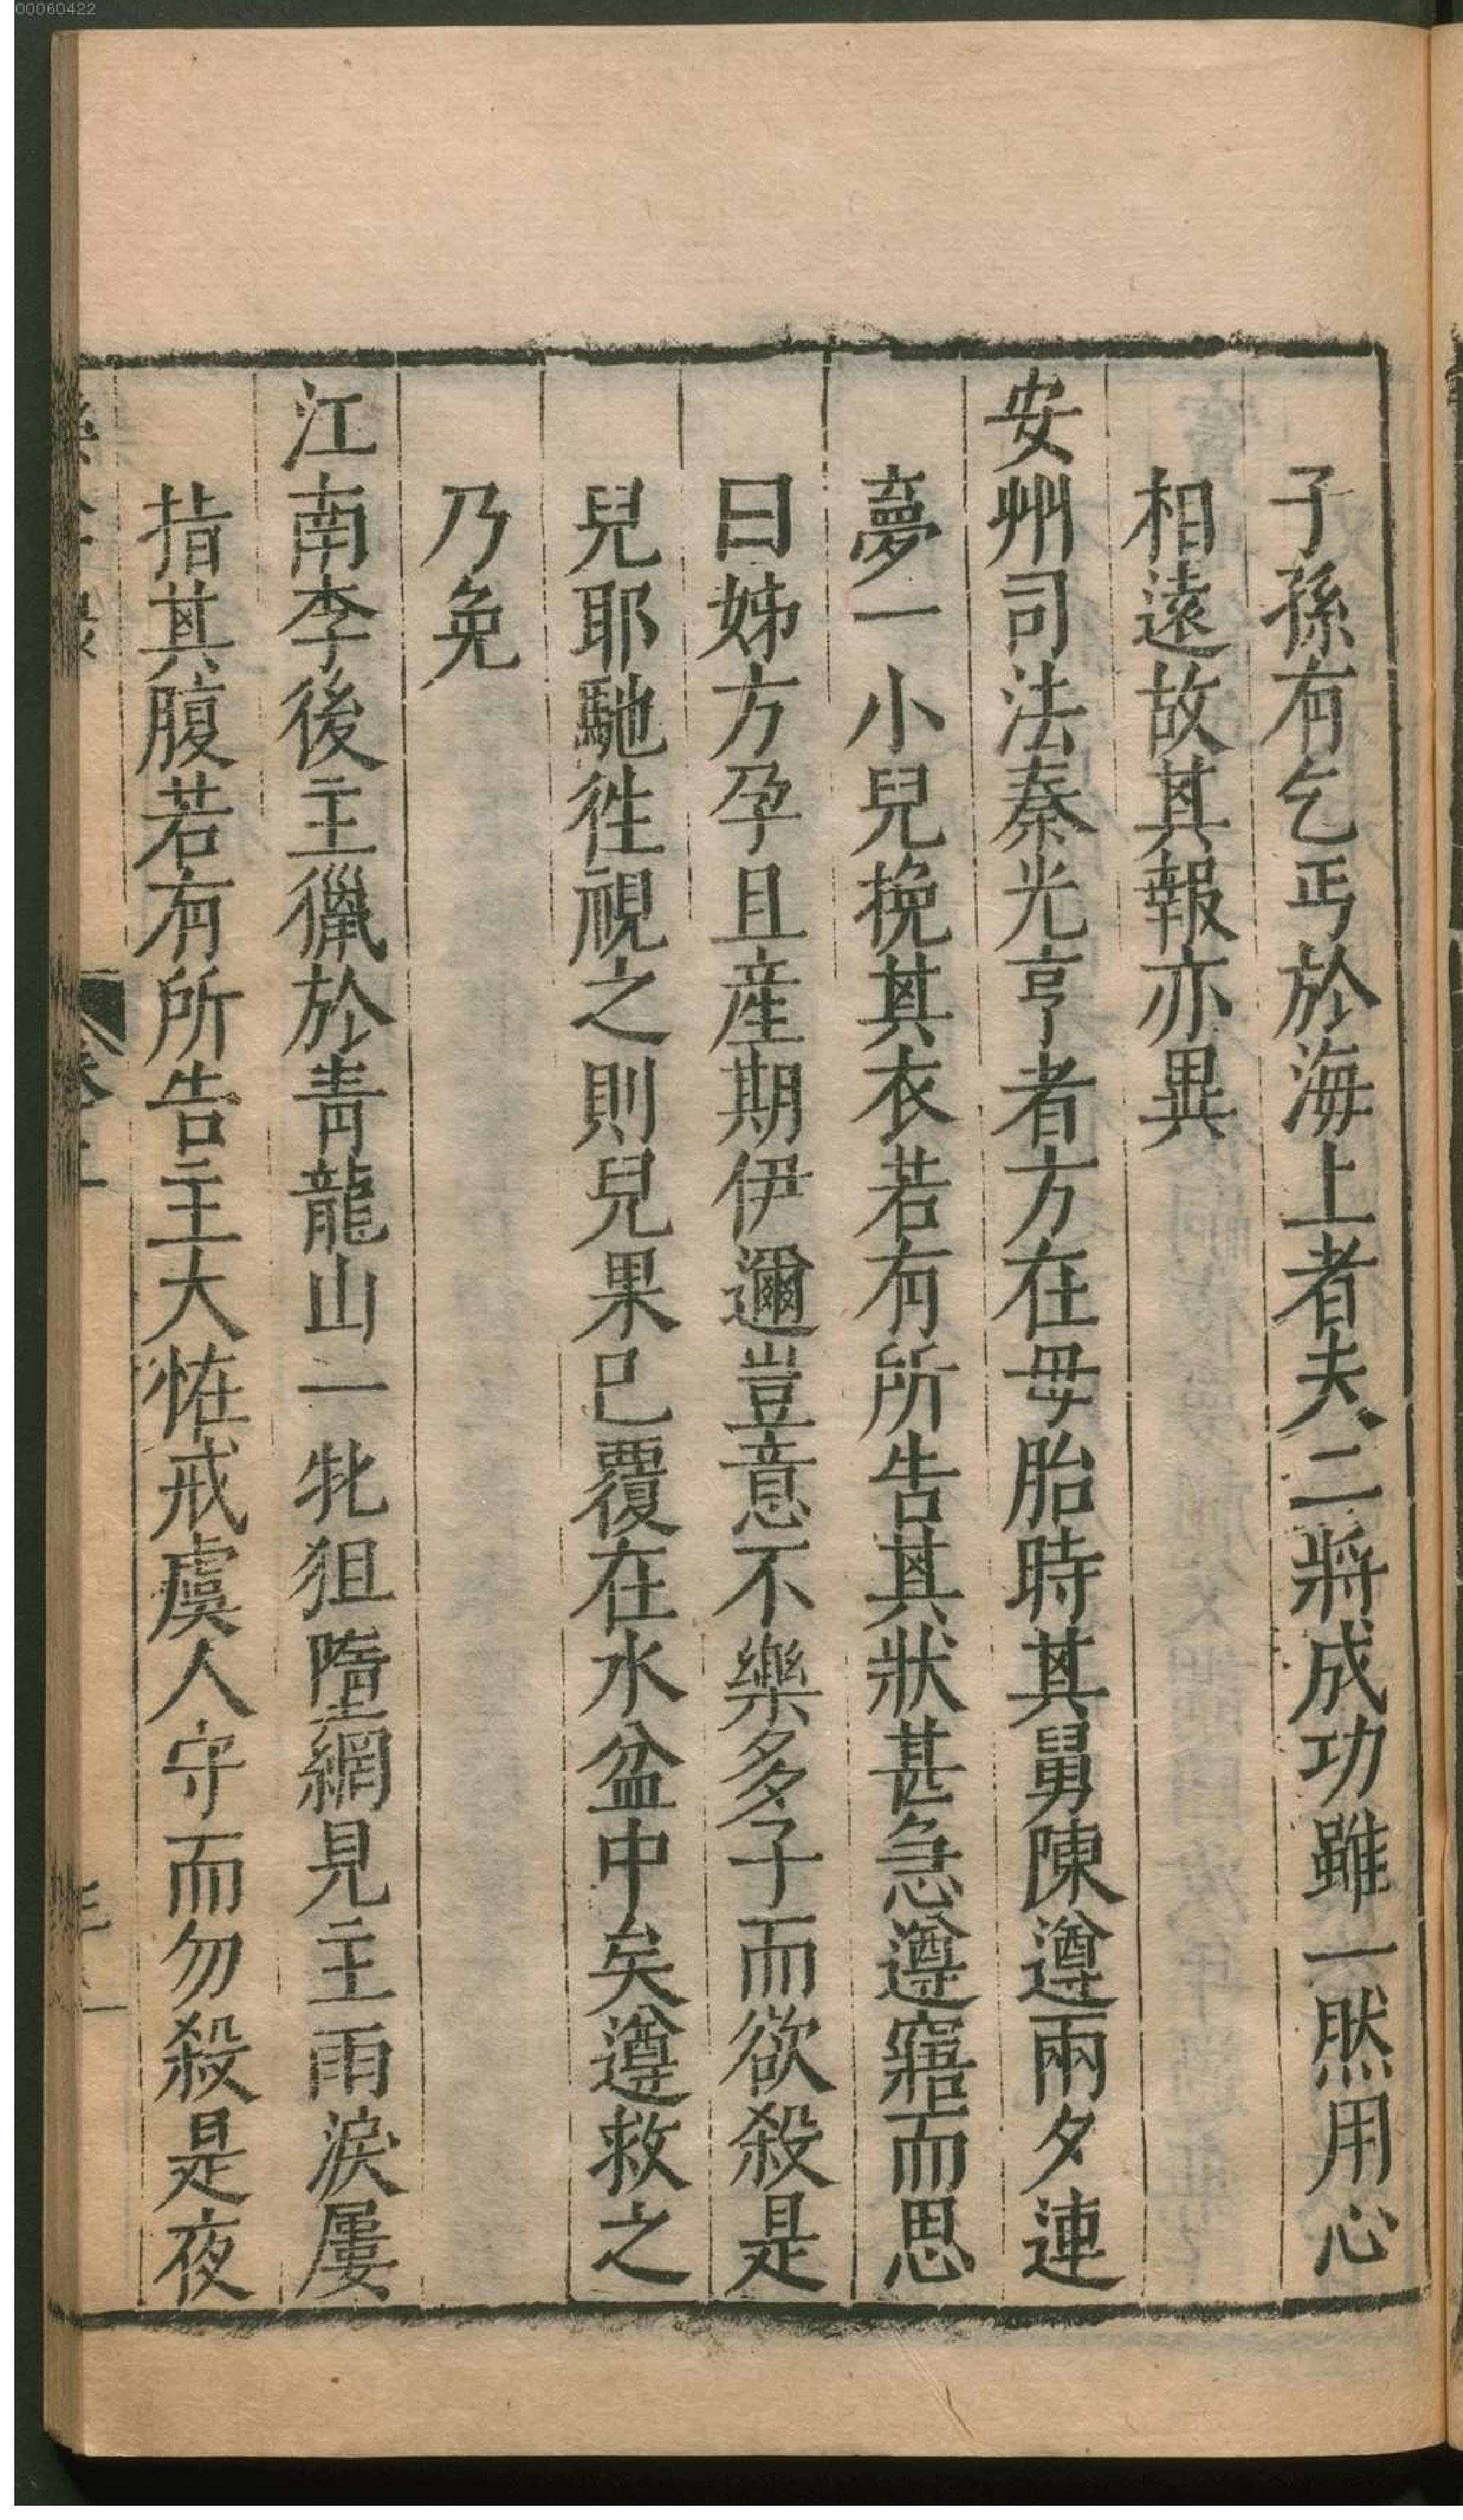 00060422
子孫有乞丐於海上者夫二將成功雖一然用心
相遠故其報亦異
安州司法秦光亨者方在母胎時其舅陳遵兩夕連
夢一小兒挽其衣若有所告其狀甚急遵寤而思
曰姊方孕且産期伊邇豈意不樂多子而欲殺是
兒耶馳徃視之則兒果已覆在水盆中矣遵救之
乃免
江南李後主獵於靑龍山一牝狙墮網見主雨淚屢
指其腹若有所告主大恠戒虞人守而勿殺是夜